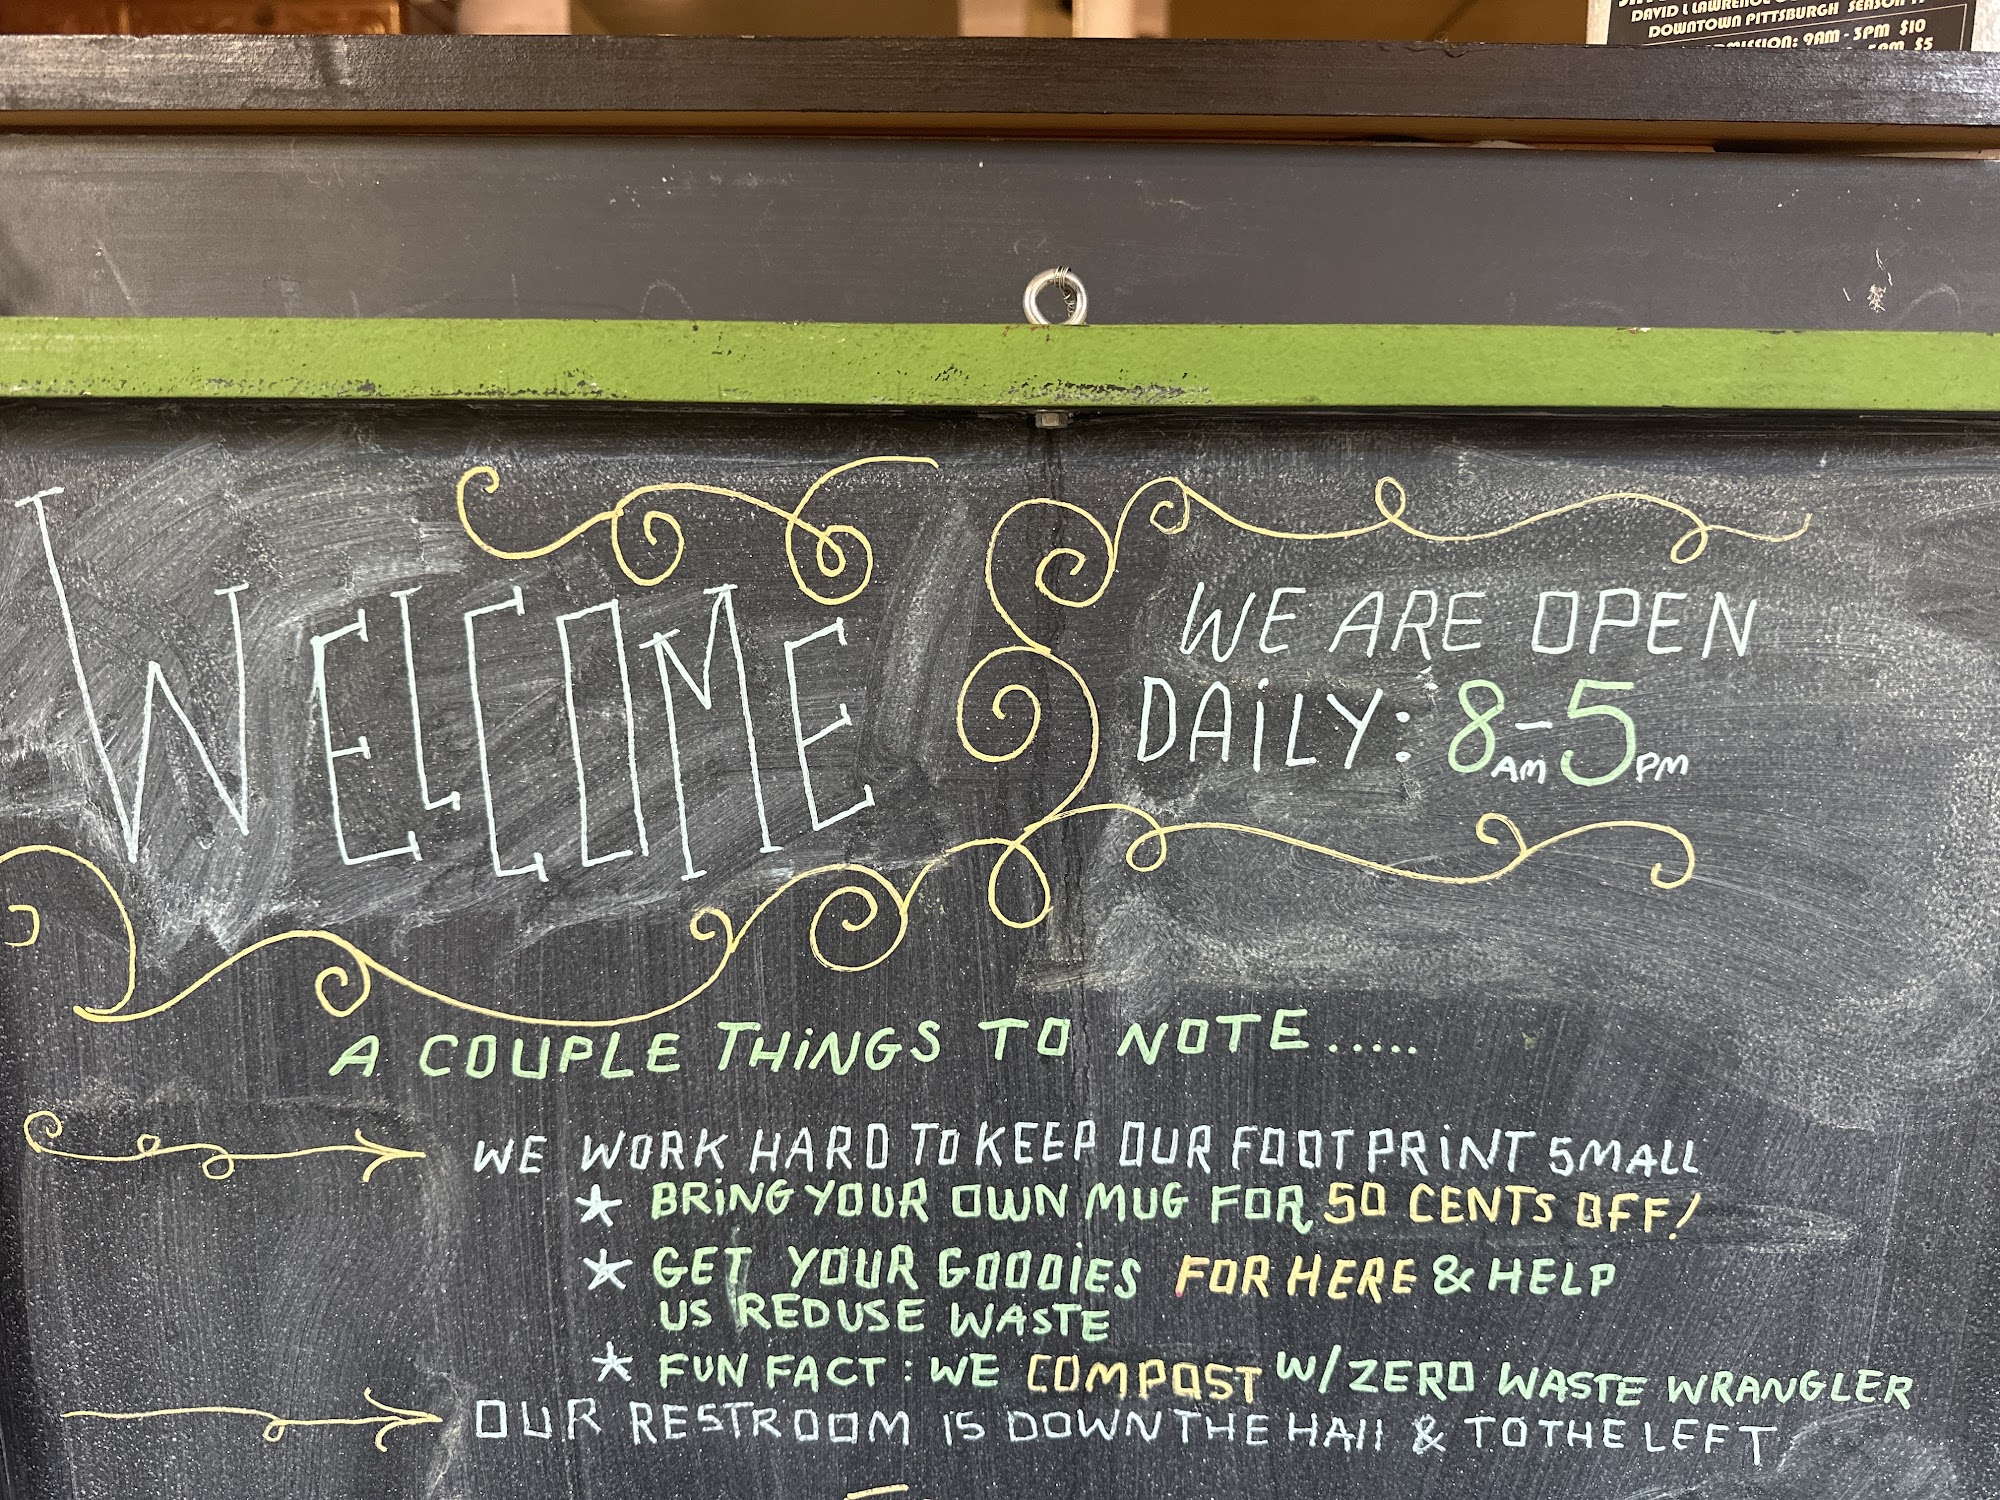 DAVID L LAWRENCE
DOWNTOWN PITTSBURGH SEASON
9AM - 3PM $10
$5
WELCOME
WE ARE OPEN
DAILY: 8AM-5PM
A COUPLE THINGS TO NOTE.....
WE WORK HARD TO KEEP OUR FOOTPRINT SMALL
* BRING YOUR OWN MUG FOR 50 CENTS OFF!
* GET YOUR GOODIES FOR HERE & HELP
US REDUSE WASTE
* FUN FACT: WE COMPOST W/ ZERO WASTE WRANGLER
OUR RESTROOM IS DOWN THE HALL & TO THE LEFT